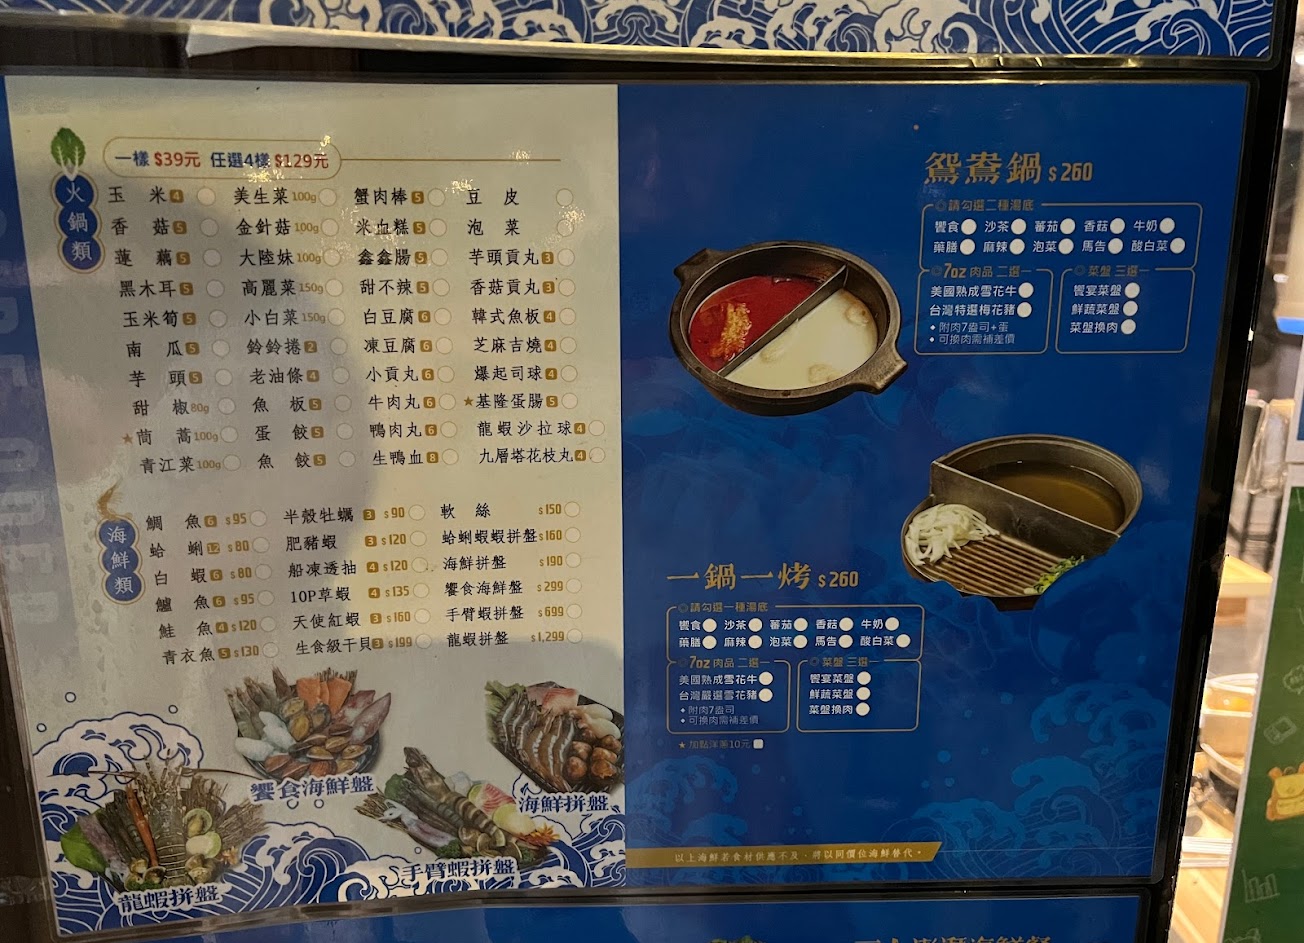 一樣 $39元 任選4樣 $129元
火鍋類
玉米 4 美生菜 100g 蟹肉棒 5 豆皮
香菇 5 金針菇 100g 米血糕 5 泡菜
蓮藕 5 大陸妹 100g 鑫鑫腸 5 芋頭貢丸 3
黑木耳 5 高麗菜 150g 甜不辣 5 香菇貢丸 3
玉米筍 5 小白菜 150g 白豆腐 6 韓式魚板 4
南瓜 5 鈴鈴捲 2 凍豆腐 6 芝麻吉燒 4
芋頭 5 老油條 4 小貢丸 6 爆起司球 4
甜椒 80g 魚板 5 牛肉丸 6 ★基隆蛋腸 5
★茼蒿 100g 蛋餃 5 鴨肉丸 6 龍蝦沙拉球 4
青江菜 100g 魚餃 5 生鴨血 8 九層塔花枝丸 4
海鮮類
鯛魚 6 $95 半殼牡蠣 3 $90 軟絲 $150
蛤蜊 12 $80 肥豬蝦 3 $120 蛤蜊蝦蝦拼盤 $160
白蝦 6 $80 船凍透抽 4 $120 海鮮拼盤 $190
鱸魚 6 $95 10P草蝦 4 $135 饗食海鮮盤 $299
鮭魚 4 $120 天使紅蝦 3 $160 手臂蝦拼盤 $699
青衣魚 5 $130 生食級干貝 3 $199 龍蝦拼盤 $1,299
饗食海鮮盤
海鮮拼盤
手臂蝦拼盤
龍蝦拼盤
鴛鴦鍋 $260
請勾選二種湯底
饗食 沙茶 蕃茄 香菇 牛奶
藥膳 麻辣 泡菜 馬告 酸白菜
7oz 肉品 二選一
美國熟成雪花牛
台灣特選梅花豬
◆附肉7盎司+蛋
◆可換肉需補差價
菜盤 三選一
饗宴菜盤
鮮蔬菜盤
菜盤換肉
一鍋一烤 $260
請勾選一種湯底
饗食 沙茶 蕃茄 香菇 牛奶
藥膳 麻辣 泡菜 馬告 酸白菜
7oz 肉品 二選一
美國熟成雪花牛
台灣嚴選雪花豬
◆附肉7盎司
◆可換肉需補差價
菜盤 三選一
饗宴菜盤
鮮蔬菜盤
菜盤換肉
★加點洋蔥10元
以上海鮮若食材供應不及，將以同價位海鮮替代。